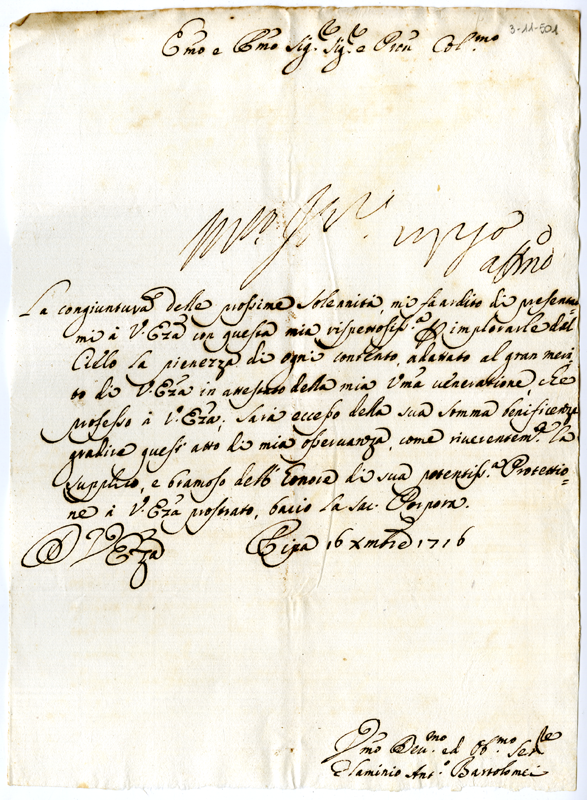 3-11-501
Emo e Rmo Sig.r Sig.r e Pron Col.mo
affmo
La congiuntura delle prossime solennità, mi fa ardito di presentar
mi à V. Eza con questa mia rispettosiss.a p implorarle dal
Cielo la pienezza di ogni contento, adattato al gran meri
to di V. Eza in attestato della mia Uma veneratione, che
professo à V. Eza. Sarà eccesso della sua somma benificenza
gradire quest' atto di mia osservanza, come riverentem.e la
supplico, e bramoso dell' honore di sua potentiss.a Protettio-
ne à V. Eza prostrato, bacio la Sac. Porpora.
D V Eza
Ripa 16 Xmbre 1716
Vmo Dev.mo ed Obb.mo Serre
Flaminio Ant.o Bartolomei